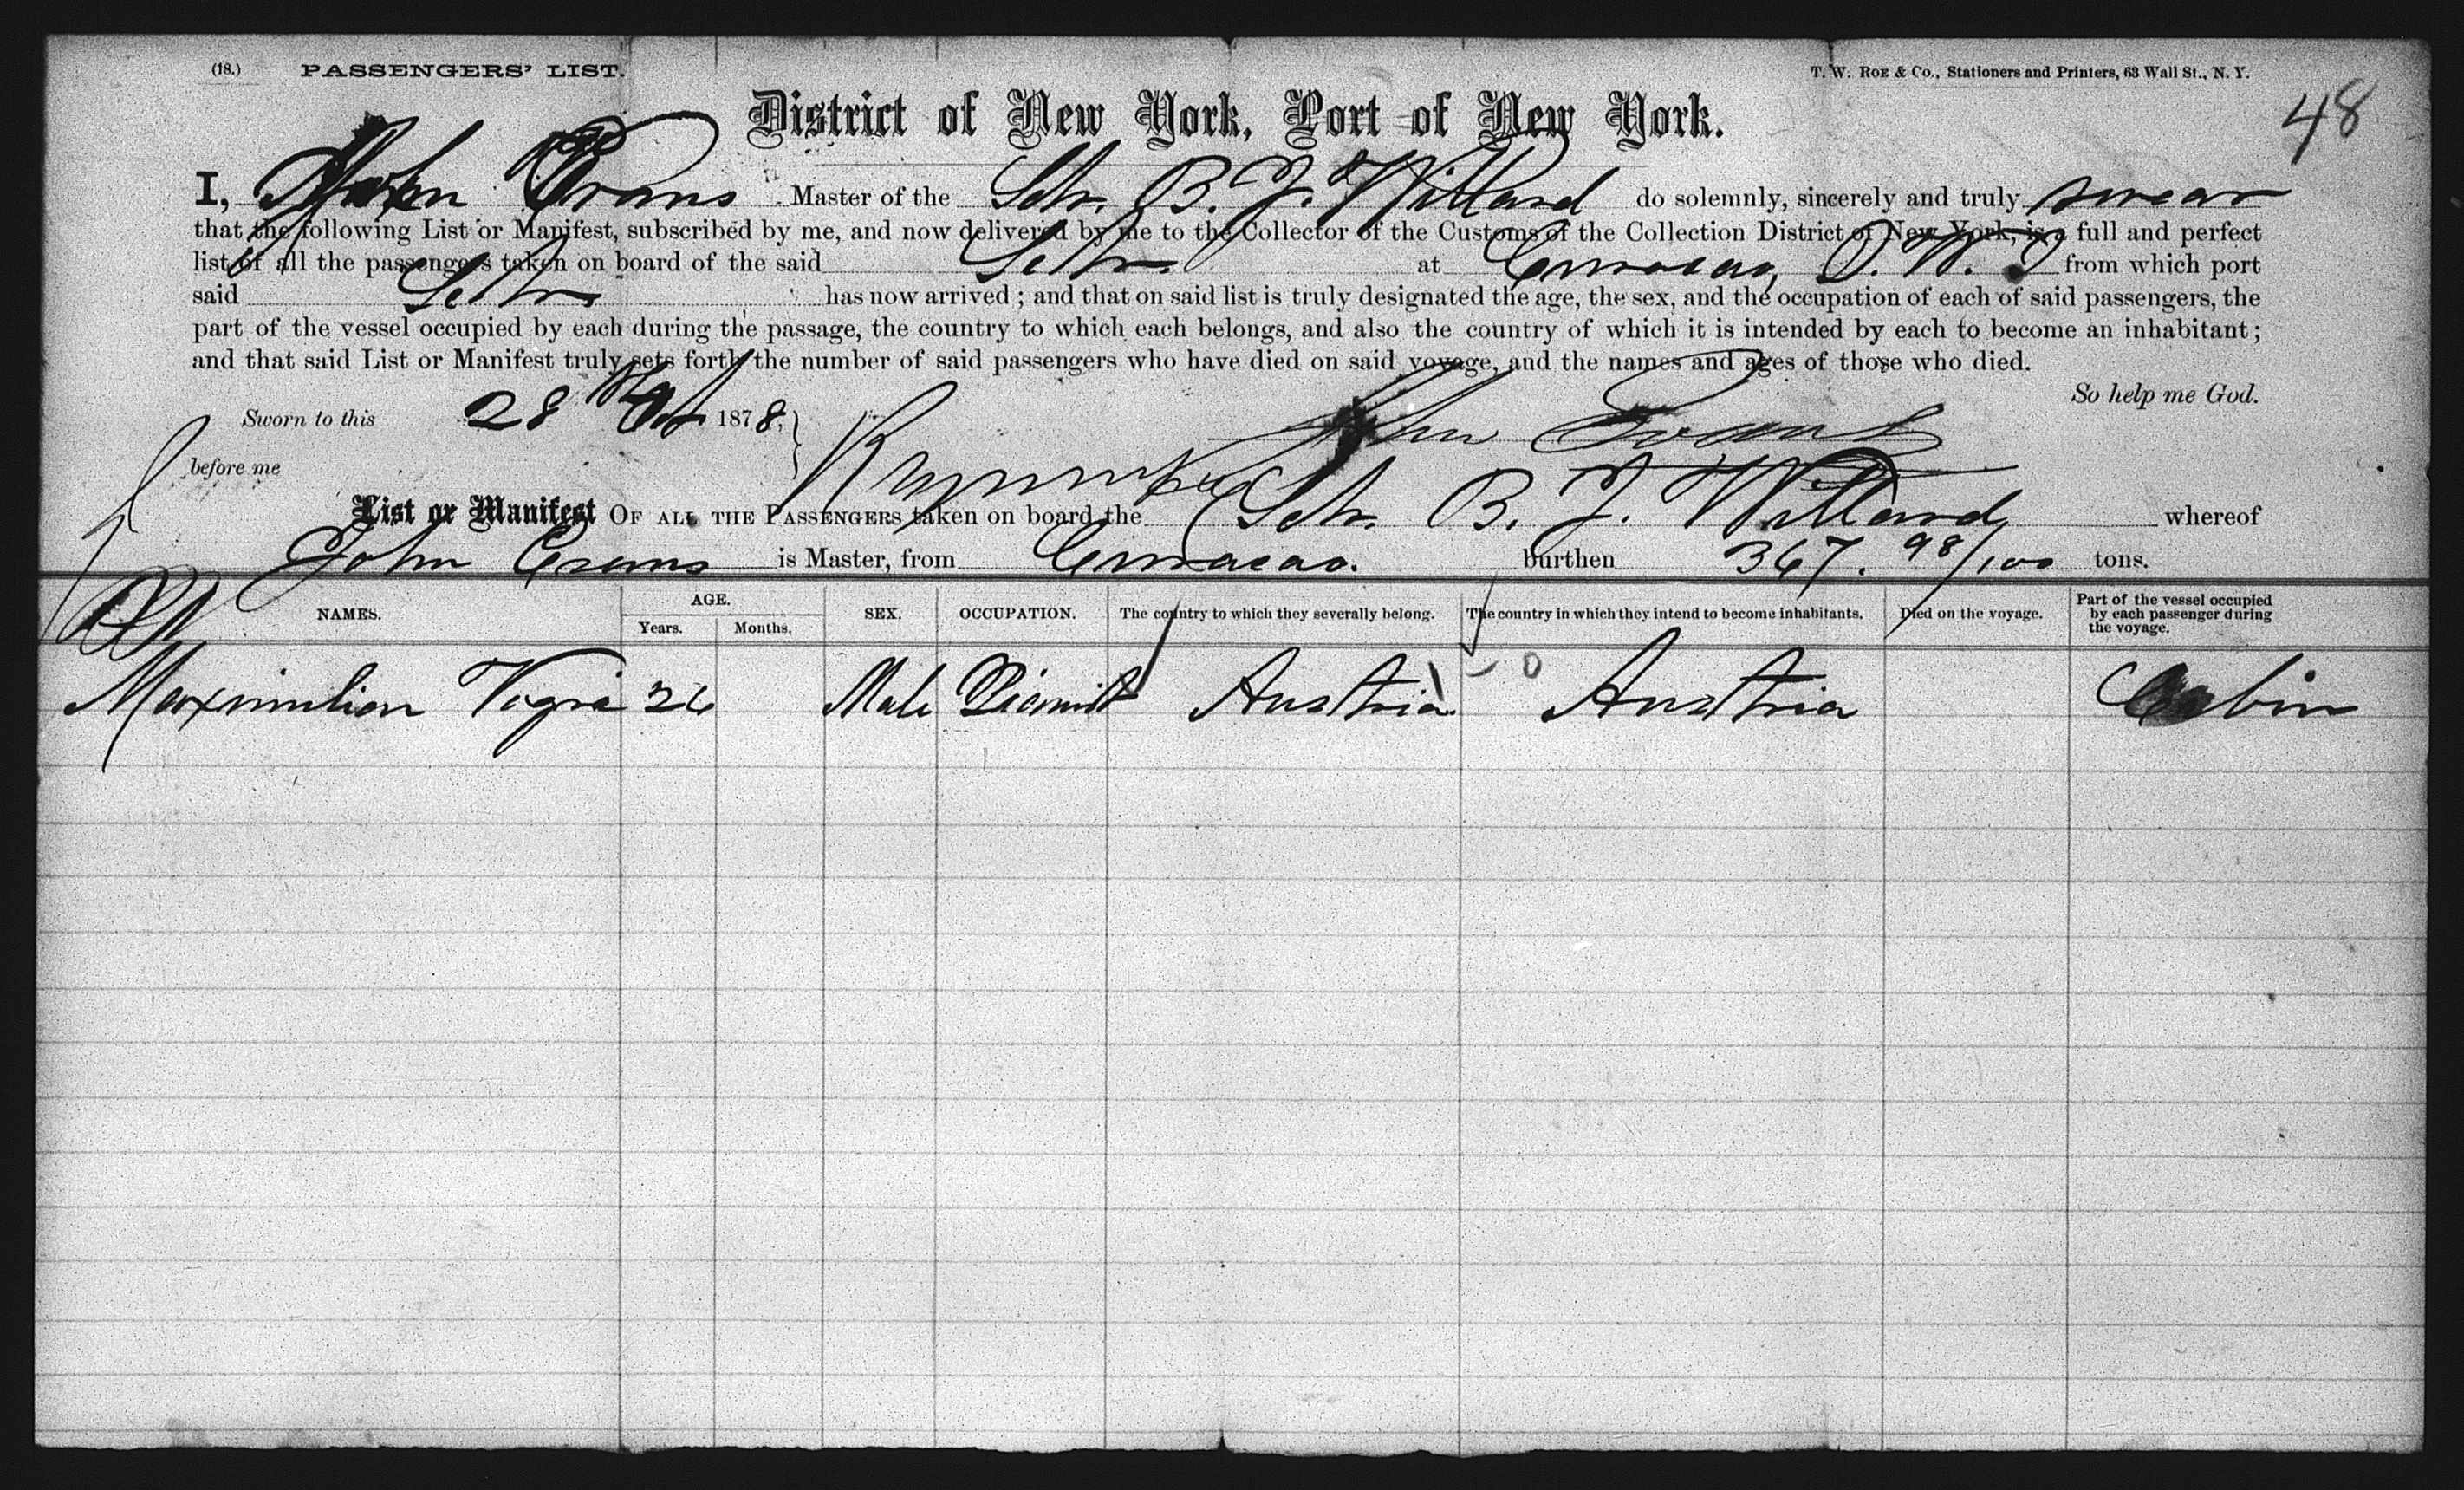 (18.) PASSENGERS' LIST. T. W. ROE & Co., Stationers and Printers, 63 Wall St., N. Y.
District of New York, Port of New York. 48
I, John Evans Master of the Schr. B. J. Willard do solemnly, sincerely and truly swear
that the following List or Manifest, subscribed by me, and now delivered by me to the Collector of the Customs of the Collection District of New York, is a full and perfect
list of all the passengers taken on board of the said Schr at Curracao, D. W. I from which port
said Schr has now arrived; and that on said list is truly designated the age, the sex, and the occupation of each of said passengers, the
part of the vessel occupied by each during the passage, the country to which each belongs, and also the country of which it is intended by each to become an inhabitant;
and that said List or Manifest truly sets forth the number of said passengers who have died on said voyage, and the names and ages of those who died.
So help me God.
Sworn to this 28 1878, John Evans
before me
List or Manifest OF ALL THE PASSENGERS taken on board the Schr. B. J. Willard whereof
John Evans is Master, from Curracao. burthen 367. 98/100 tons.
NAMES. AGE. Years. Months. SEX. OCCUPATION. The country to which they severally belong. The country in which they intend to become inhabitants. Died on the voyage. Part of the vessel occupied by each passenger during the voyage.
Maximilian 26 Male Austria Austria Cabin